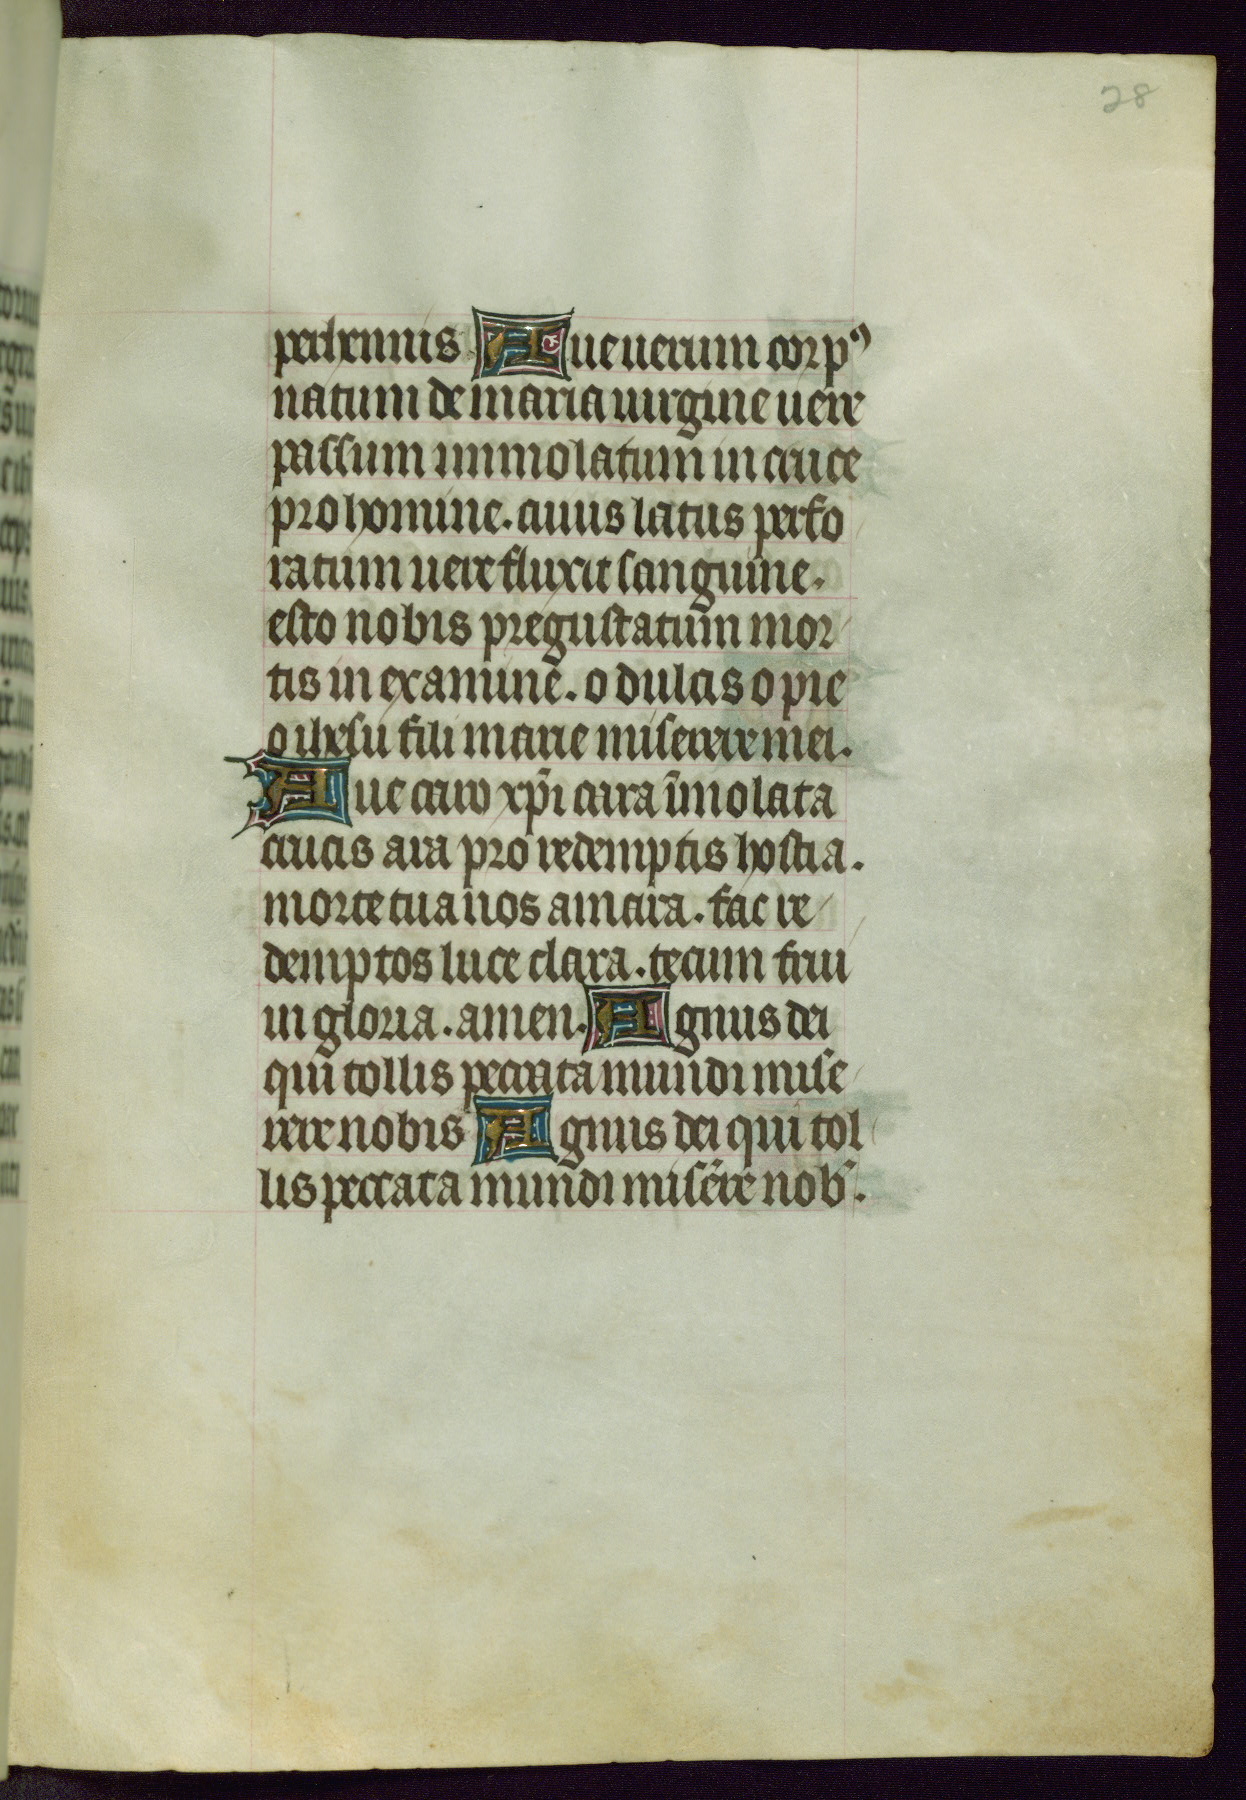 28
perhennis Aue uerum corpꝰ
natum de maria uirgine uere
passum immolatum in cruce
pro homine. cuius latus perfo
ratum uere fluxit sanguine.
esto nobis pregustatum mor
tis in examine. o dulcis o pie
o ihesu fili marie miserere mei.
Aue caro xp̄i cara īmolata
crucis ara pro redemptis hostia.
morte tua nos amara. fac re
demptos luce clara. tecum frui
in gloria. amen. Agnus dei
qui tollis peccata mundi mise
rere nobis Agnus dei qui tol
lis peccata mundi mis̄ere nob̄.